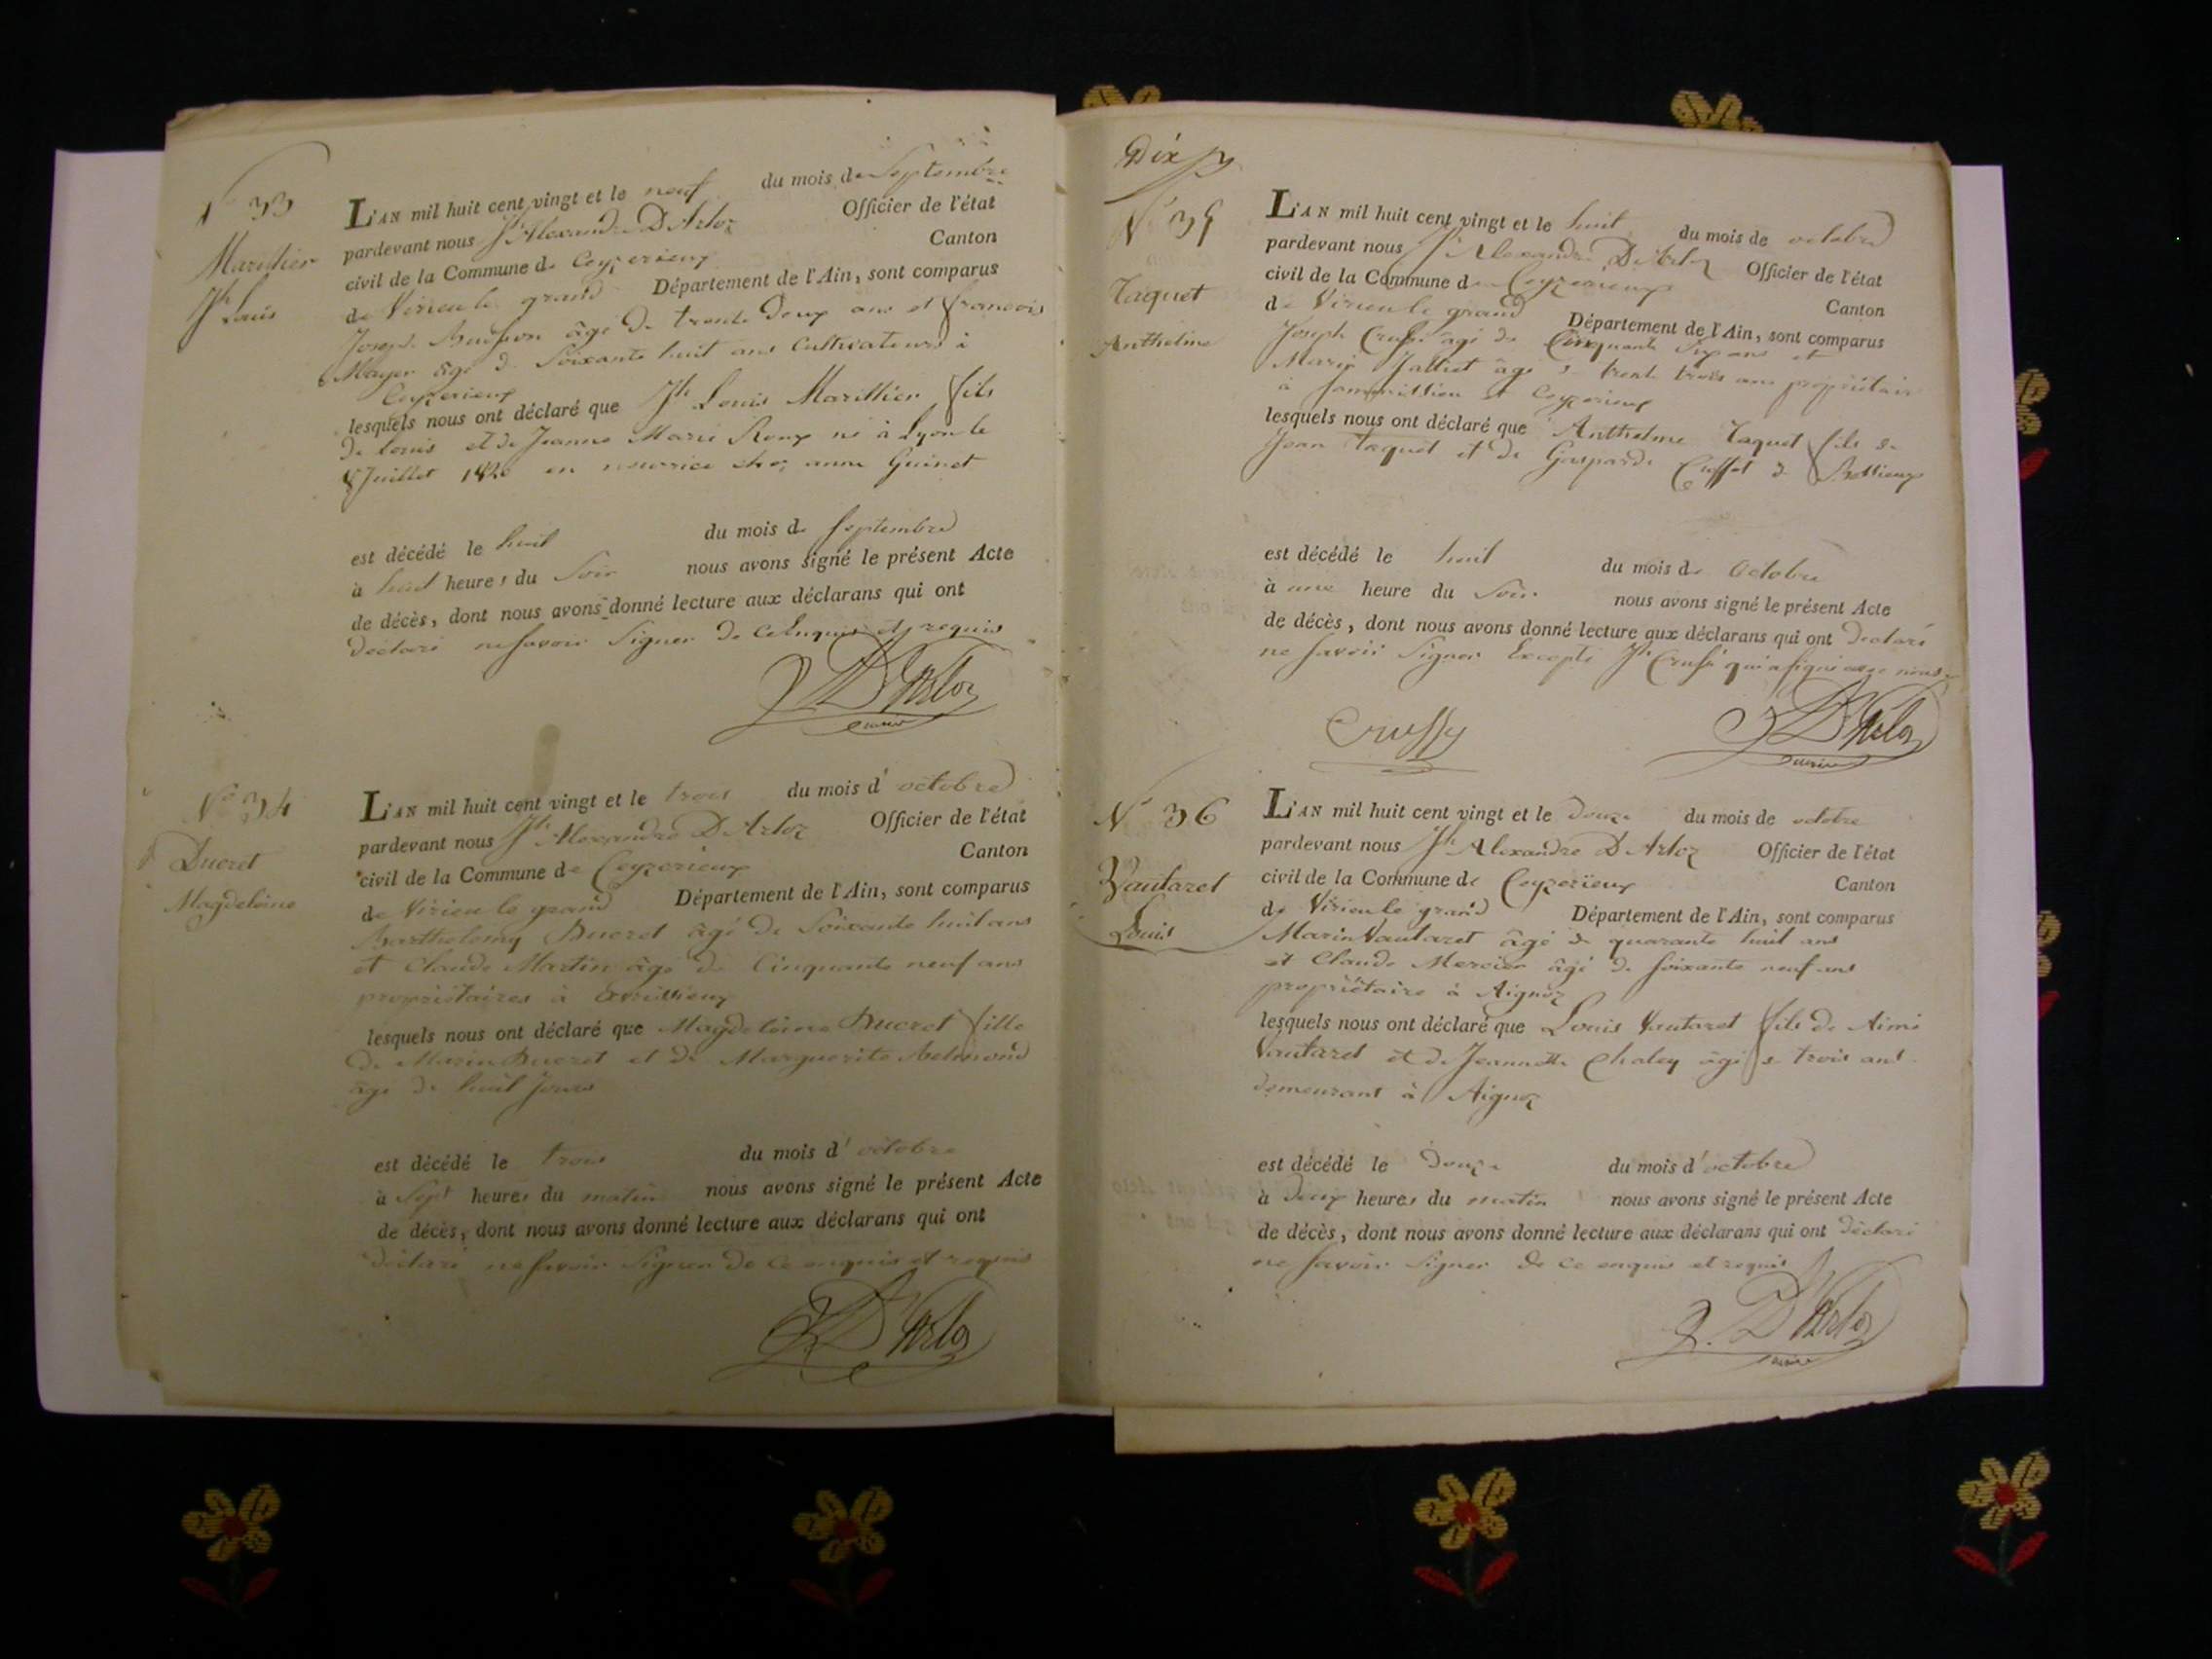 N° 33
Marillier
Jh Louis
L'AN mil huit cent vingt et le neuf du mois de Septembre
pardevant nous Jh Alexandre D'Arloz Officier de l'état
civil de la Commune de Ceyzerieux Canton
de Virieu le grand Département de l'Ain, sont comparus
Joseph âgé de trente deux ans et francois
Mayer âgé de Soixante huit ans Cultivateurs à
Ceyzerieux
lesquels nous ont déclaré que Jh Louis Marillier fils
de Louis et de Jeanne Marie Roux né à Lyon le
Juillet 1820 en nourrice chez anne Guinet
est décédé le huit du mois de Septembre
à huit heures du Soir nous avons signé le présent Acte
de décès, dont nous avons donné lecture aux déclarans qui ont
déclaré ne savoir signer de ce enquis et requis
J D'Arloz
maire
N° 34
Ducret
Magdeleine
L'AN mil huit cent vingt et le trois du mois d'octobre
pardevant nous Jh Alexandre D'Arloz Officier de l'état
civil de la Commune de Ceyzerieux Canton
de Virieu le grand Département de l'Ain, sont comparus
Barthelemy Ducret âgé de Soixante huit ans
et Claude Martin âgé de Cinquante neuf ans
propriétaires à
lesquels nous ont déclaré que Magdeleine Ducret fille
de Marin Ducret et de Marguerite
âgé de huit jours
est décédé le trois du mois d'octobre
à Sept heures du matin nous avons signé le présent Acte
de décès, dont nous avons donné lecture aux déclarans qui ont
déclaré ne savoir signer de ce enquis et requis
J D'Arloz
Dix
N° 35
Taquet
Anthelme
L'AN mil huit cent vingt et le huit du mois de octobre
pardevant nous Jh Alexandre D'Arloz Officier de l'état
civil de la Commune de Ceyzerieux Canton
de Virieu le grand Département de l'Ain, sont comparus
Joseph âgé de Cinquante six ans et
Marin Jalliet âgé de trente trois ans propriétaire
à et Ceyzerieux
lesquels nous ont déclaré que Anthelme Taquet fils de
Jean Taquet et de Gasparde Cuffet de
est décédé le huit du mois de Octobre
à une heure du Soir nous avons signé le présent Acte
de décès, dont nous avons donné lecture aux déclarans qui ont déclaré
ne savoir signer Excepté Jh qui a signé avec nous
Crussy J D'Arloz
maire
N° 36
Vautaret
Louis
L'AN mil huit cent vingt et le Douze du mois de octobre
pardevant nous Jh Alexandre D'Arloz Officier de l'état
civil de la Commune de Ceyzerieux Canton
de Virieu le grand Département de l'Ain, sont comparus
Marin Vautaret âgé de quarante huit ans
et Claude Mercier âgé de soixante neuf ans
propriétaire à Aignoz
lesquels nous ont déclaré que Louis Vautaret fils de Aimé
Vautaret et de Jeannette Chaley âgé de trois ans
demeurant à Aignoz
est décédé le Douze du mois d'octobre
à deux heures du matin nous avons signé le présent Acte
de décès, dont nous avons donné lecture aux déclarans qui ont déclaré
ne savoir signer de ce enquis et requis
J. D'Arloz
maire